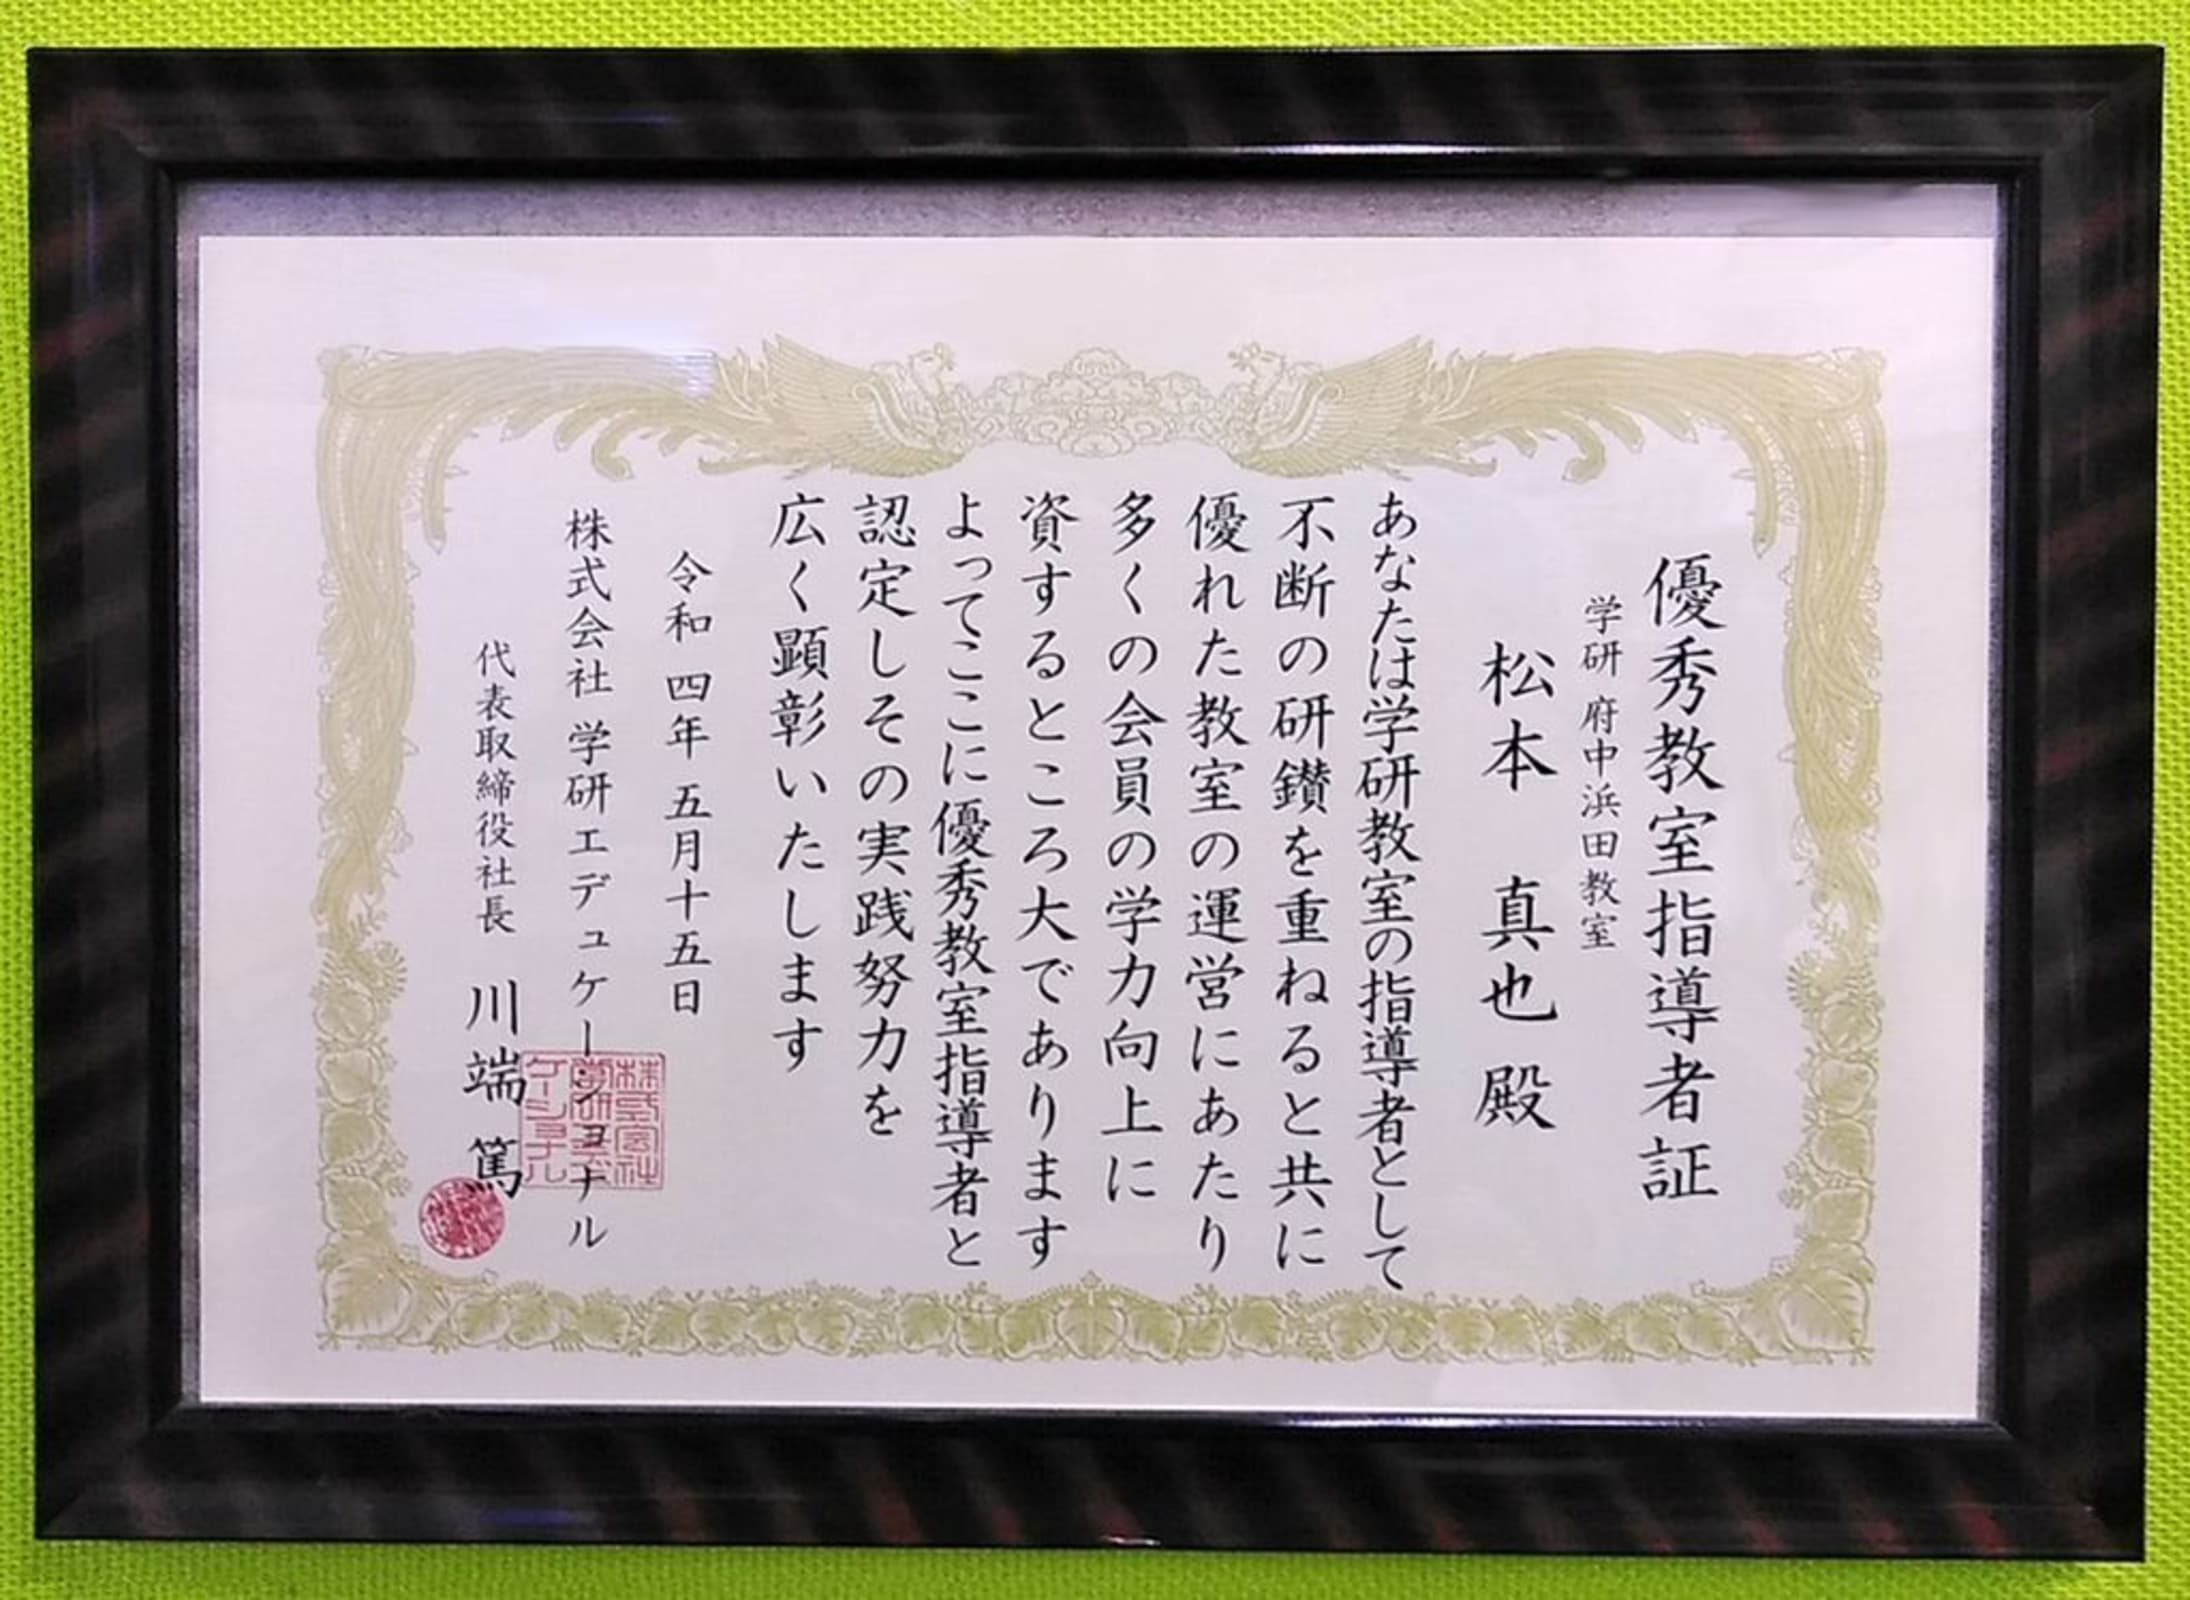 優秀教室指導者証
学研 府中浜田教室
松本 真也 殿
あなたは学研教室の指導者として
不断の研鑚を重ねると共に
優れた教室の運営にあたり
多くの会員の学力向上に
資するところ大であります
よってここに優秀教室指導者と
認定しその実践努力を
広く顕彰いたします
令和四年五月十五日
株式会社 学研エデュケーショナル
代表取締役社長 川端 篤
株式会社
学研エデュ
ケーショナル